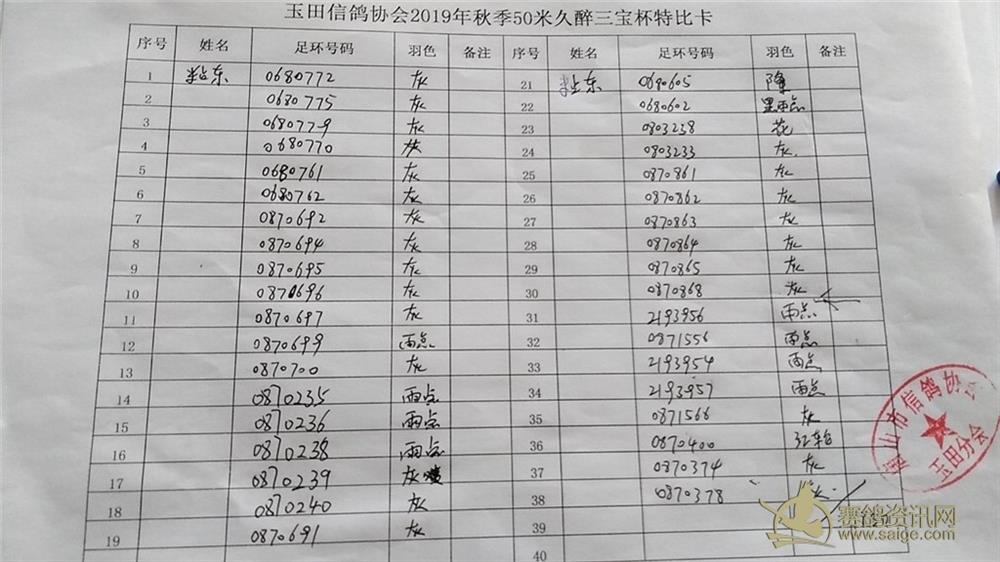 玉田信鸽协会2019年秋季50米久醉三宝杯特比卡
序号 姓名 足环号码 羽色 备注 序号 姓名 足环号码 羽色 备注
1 粘东 0680772 灰 21 粘东 0680605 降
2 0680775 灰 22 0680602 黑雨点
3 0680779 灰 23 0803238 花
4 0680770 灰 24 0803233 灰
5 0680761 灰 25 0870861 灰
6 0680762 灰 26 0870862 灰
7 0870692 灰 27 0870863 灰
8 0870694 灰 28 0870864 灰
9 0870695 灰 29 0870865 灰
10 0870696 灰 30 0870868 灰
11 0870697 灰 31 2193956 雨点
12 0870699 雨点 32 0871556 雨点
13 0870700 灰 33 2193954 雨点
14 0870235 雨点 34 2193957 雨点
15 0870236 雨点 35 0871566 灰
16 0870238 雨点 36 0870400 红轮
17 0870239 灰 37 0870374 灰
18 0870240 灰 38 0870378 灰
19 0870691 灰 39
40
唐山市信鸽协会
玉田分会
赛鸽资讯网
www.saige.com